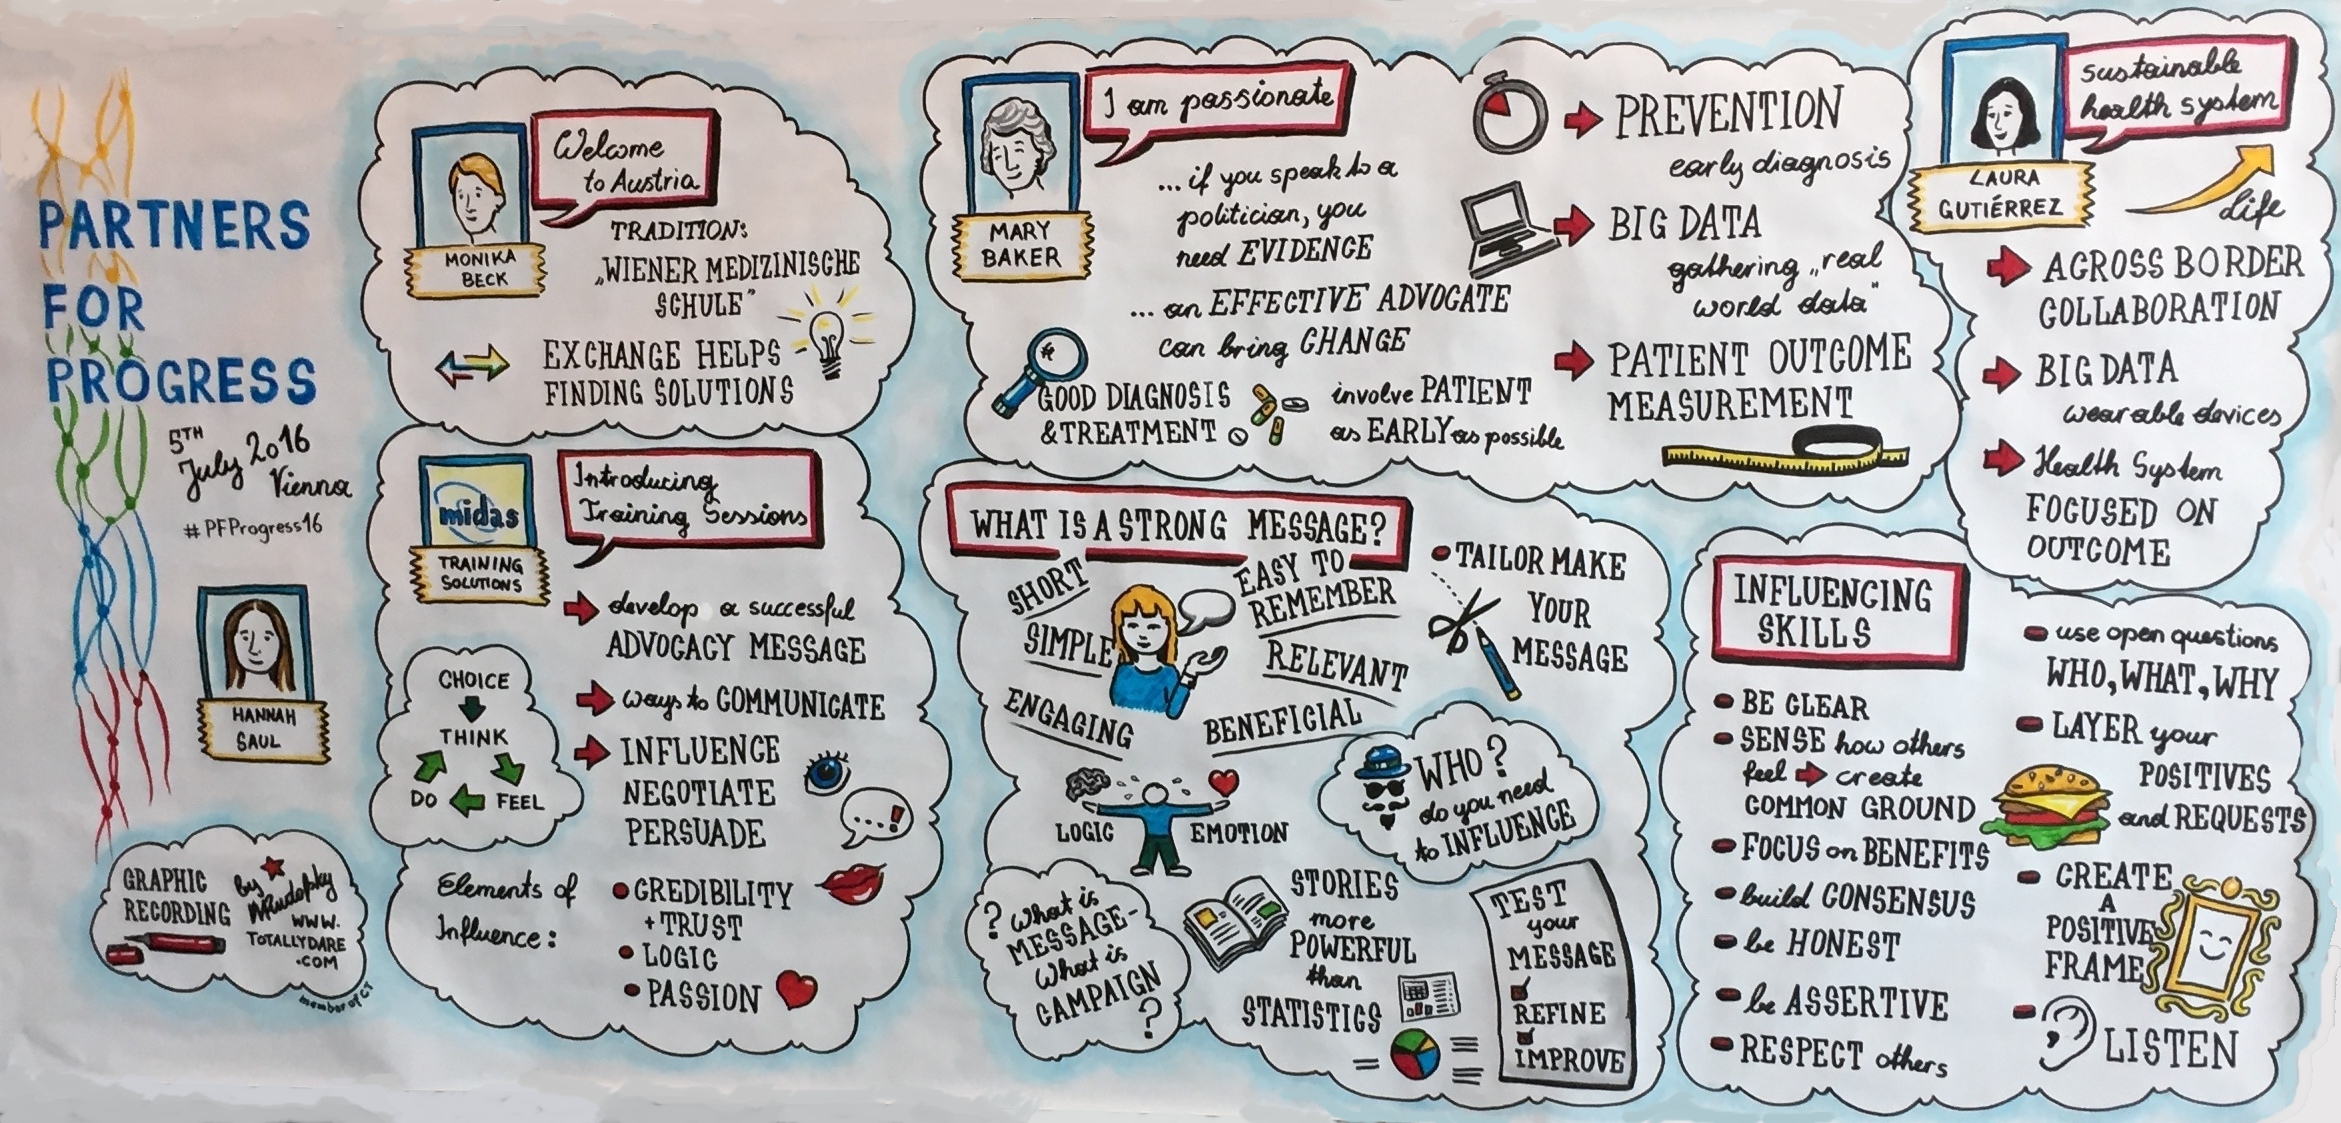 PARTNERS
FOR
PROGRESS
5TH
July 2016
Vienna
#PFProgress16
HANNAH
SAUL
GRAPHIC
RECORDING
by
WWW.
TOTALLYDARE
.COM
member of CT
MONIKA
BECK
Welcome
to Austria
TRADITION:
„WIENER MEDIZINISCHE
SCHULE"
EXCHANGE HELPS
FINDING SOLUTIONS
midas
TRAINING
SOLUTIONS
Introducing
Training Sessions
develop a successful
ADVOCACY MESSAGE
ways to COMMUNICATE
INFLUENCE
NEGOTIATE
PERSUADE
...!
CHOICE
THINK
DO
FEEL
Elements of
Influence:
CREDIBILITY
+ TRUST
LOGIC
PASSION
MARY
BAKER
I am passionate
... if you speak to a
politician, you
need EVIDENCE
... an EFFECTIVE ADVOCATE
can bring CHANGE
GOOD DIAGNOSIS
& TREATMENT
involve PATIENT
as EARLY as possible
PREVENTION
early diagnosis
BIG DATA
gathering „real
world data"
PATIENT OUTCOME
MEASUREMENT
LAURA
GUTIÉRREZ
sustainable
health system
Life
ACROSS BORDER
COLLABORATION
BIG DATA
wearable devices
Health System
FOCUSED ON
OUTCOME
WHAT IS A STRONG MESSAGE?
SHORT
SIMPLE
ENGAGING
EASY TO
REMEMBER
RELEVANT
BENEFICIAL
TAILOR MAKE
YOUR
MESSAGE
LOGIC
EMOTION
WHO?
do you need
to INFLUENCE
? What is
MESSAGE-
What is
CAMPAIGN
?
STORIES
more
POWERFUL
than
STATISTICS
TEST
your
MESSAGE
REFINE
IMPROVE
INFLUENCING
SKILLS
BE CLEAR
SENSE how others
feel create
COMMON GROUND
FOCUS on BENEFITS
build CONSENSUS
be HONEST
be ASSERTIVE
RESPECT others
use open questions
WHO, WHAT, WHY
LAYER your
POSITIVES
and REQUESTS
CREATE
A
POSITIVE
FRAME
LISTEN